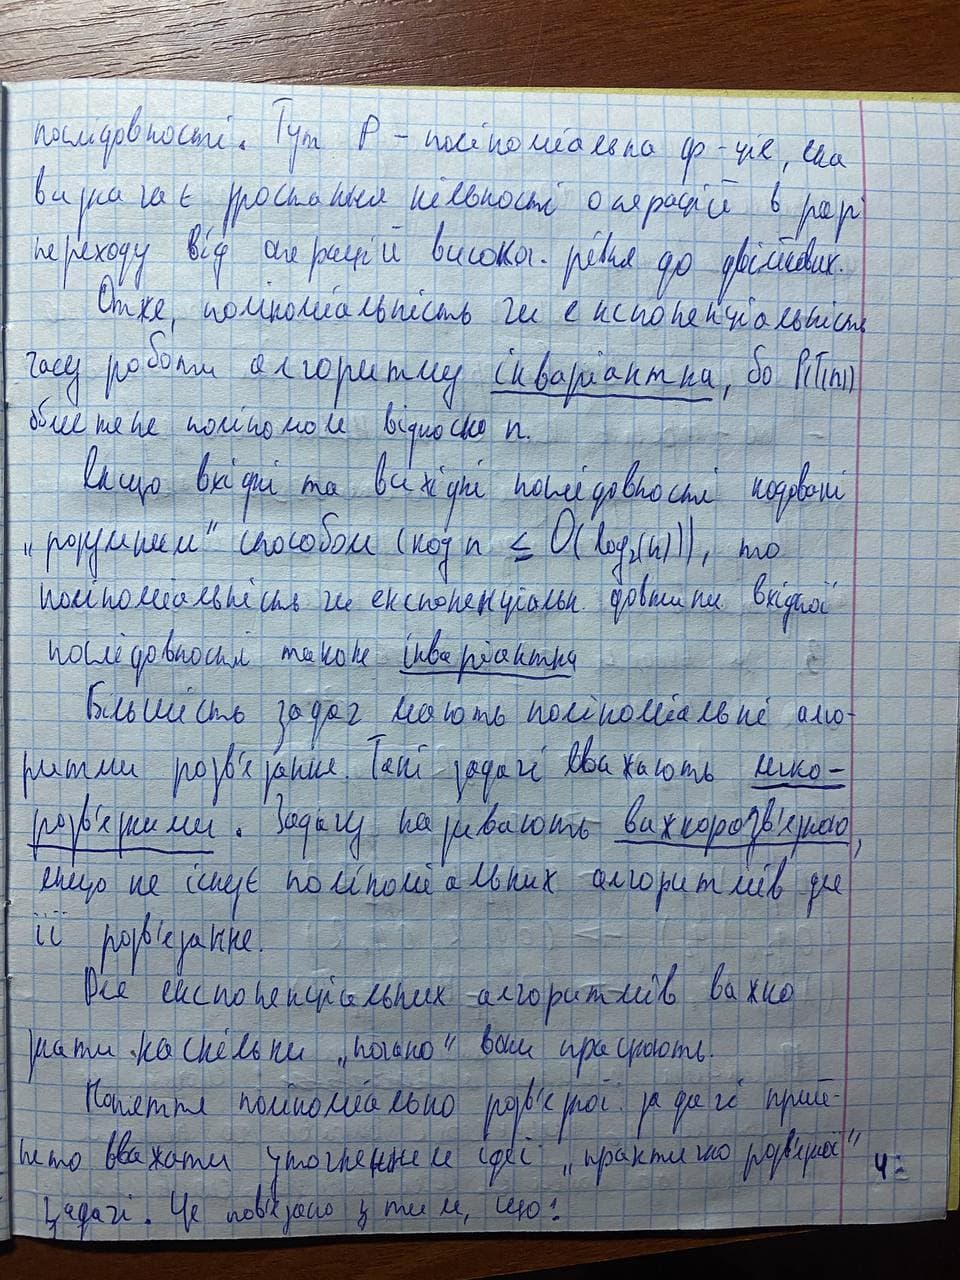 послідовності. Тут P – поліноміальна ф-ція, яка
визначає зростання кількості операцій в разі
переходу від операцій високог. рівня до двійкових.
Отже, поліноміальність чи експоненціальність
часу роботи алгоритму інваріантна, бо P(T(n))
обмежене поліномом відносно n.
Якщо вхідні та вихідні послідовності кодовані
„розумним" способом (код n ≤ O(log₂(n))), то
поліноміальність чи експоненціальн. довжини вхідної
послідовності також інваріантна
Більшість задач мають поліноміальні алго-
ритми розв'язання. Такі задачі вважають легко-
розв'язними. Задачу називають важкорозв'язною,
якщо не існує поліноміальних алгоритмів для
її розв'язання.
Для експоненціальних алгоритмів важко
знати наскільки „погано" вони працюють.
Поняття поліноміально розв'язної задачі прий-
нято вважати уточненням ідеї „практично розв'язної"
задачі. Це пов'язано з тим, що: